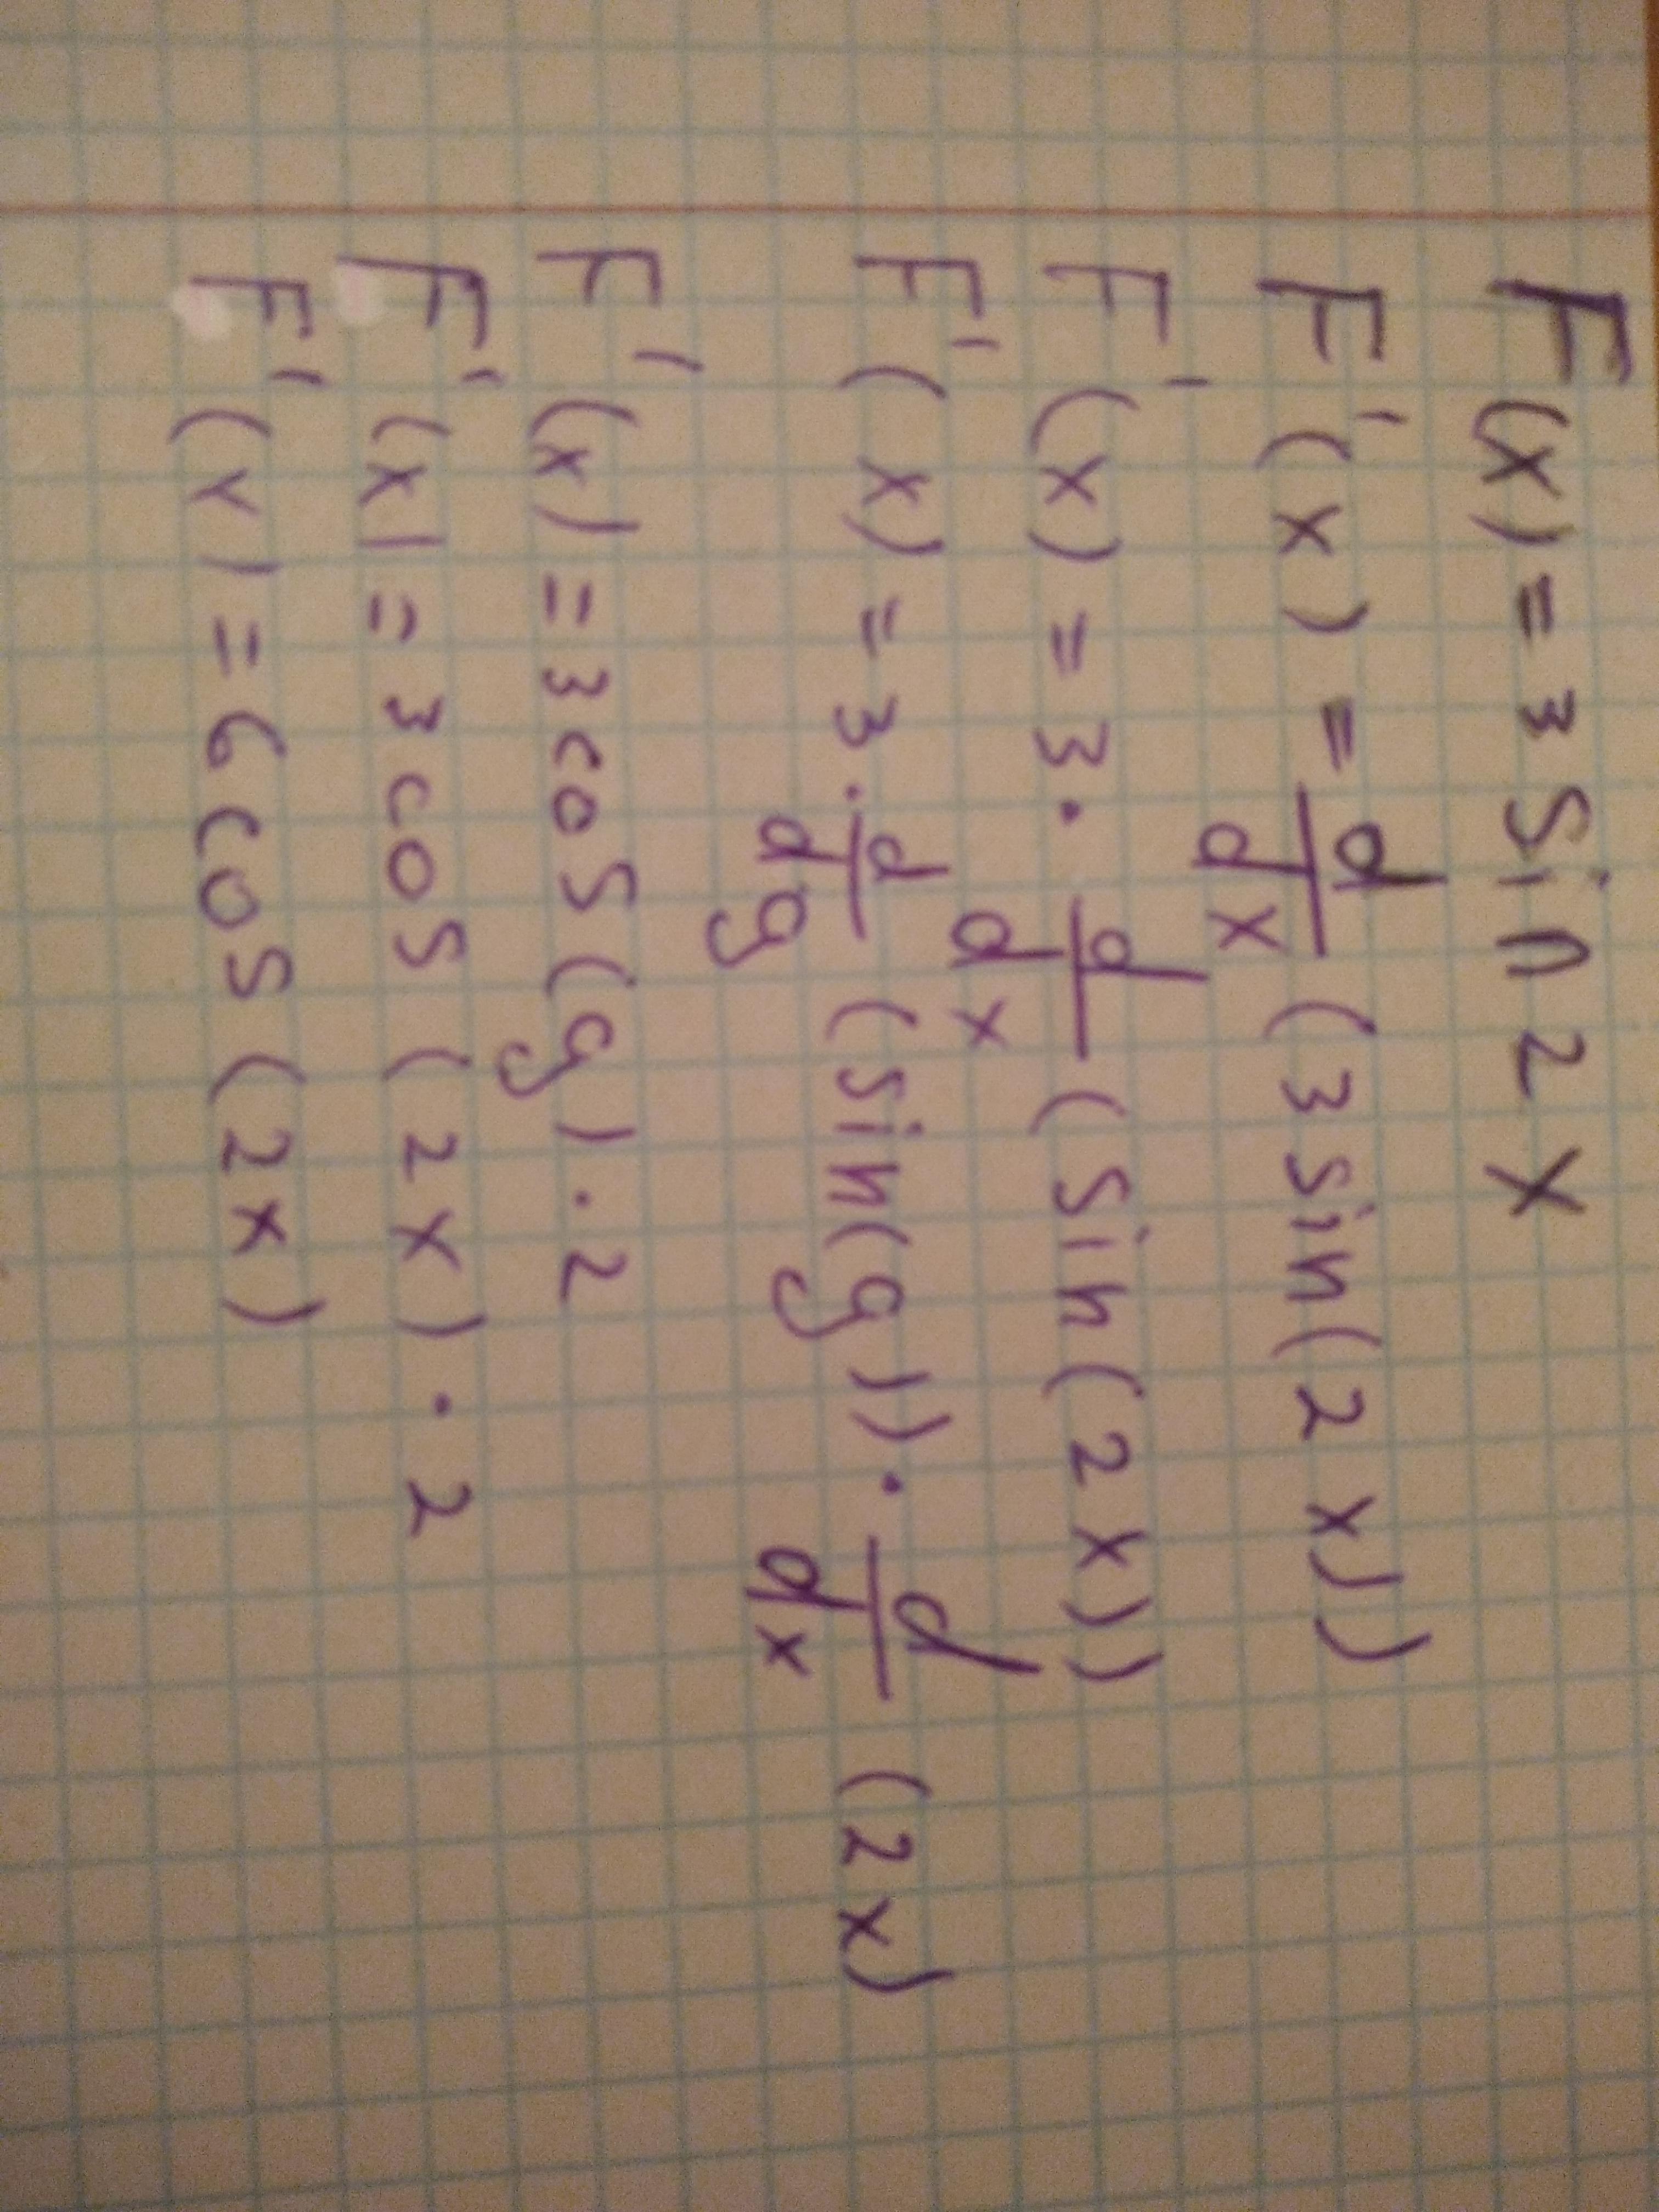 F(x) = 3 sin 2x
F'(x) = d/dx (3 sin(2x))
F'(x) = 3 · d/dx (sin(2x))
F'(x) = 3 · d/dg (sin(g)) · d/dx (2x)
F'(x) = 3 cos(g) · 2
F'(x) = 3 cos(2x) · 2
F'(x) = 6 cos(2x)